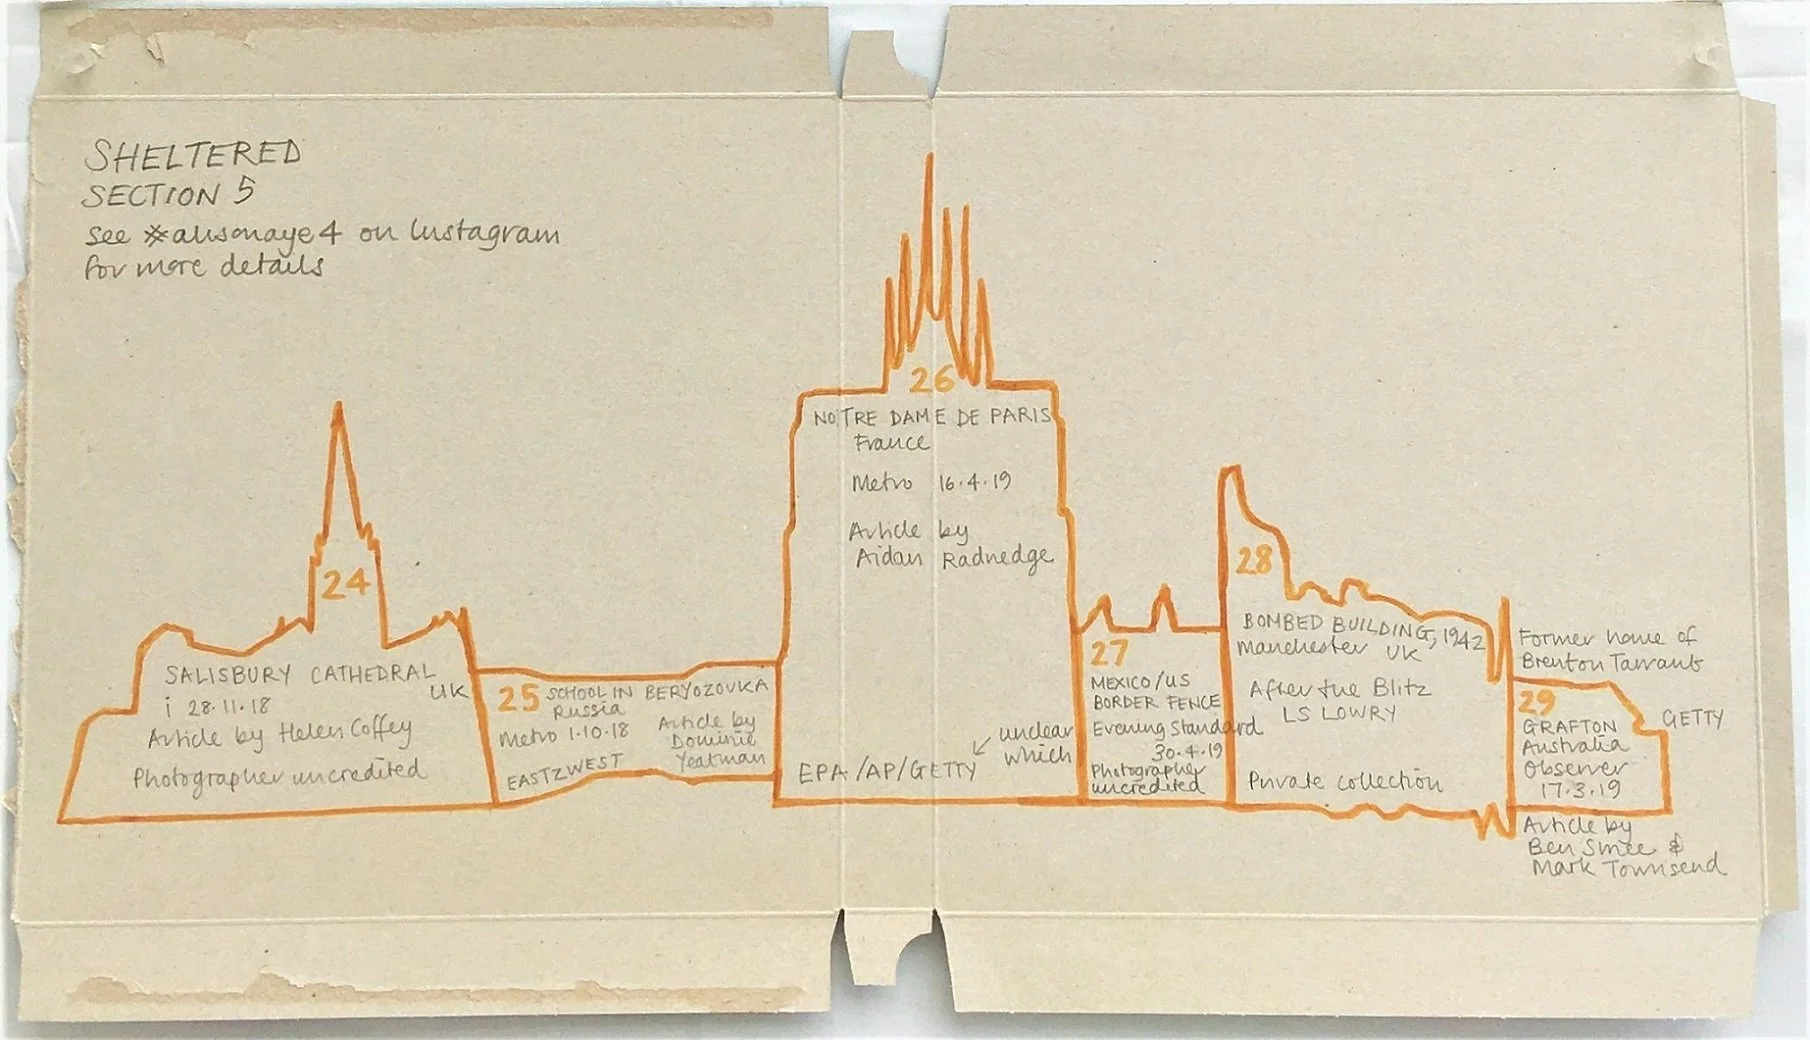 SHELTERED
SECTION 5
see #alisonaye4 on Instagram
for more details
24
SALISBURY CATHEDRAL
UK
i 28.11.18
Article by Helen Coffey
Photographer uncredited
25 SCHOOL IN BERYOZOVKA
Russia
Metro 1.10.18
Article by
Dominic
Yeatman
EAST2WEST
26
NOTRE DAME DE PARIS
France
Metro 16.4.19
Article by
Aidan Radnedge
unclear
which
EPA/AP/GETTY
27
MEXICO/US
BORDER FENCE
Evening Standard
30.4.19
Photographer
uncredited
28
BOMBED BUILDING, 1942
Manchester UK
After the Blitz
LS LOWRY
Private collection
Former home of
Brenton Tarrant
29
GRAFTON
Australia
Observer
17.3.19
GETTY
Article by
Ben Smee &
Mark Townsend